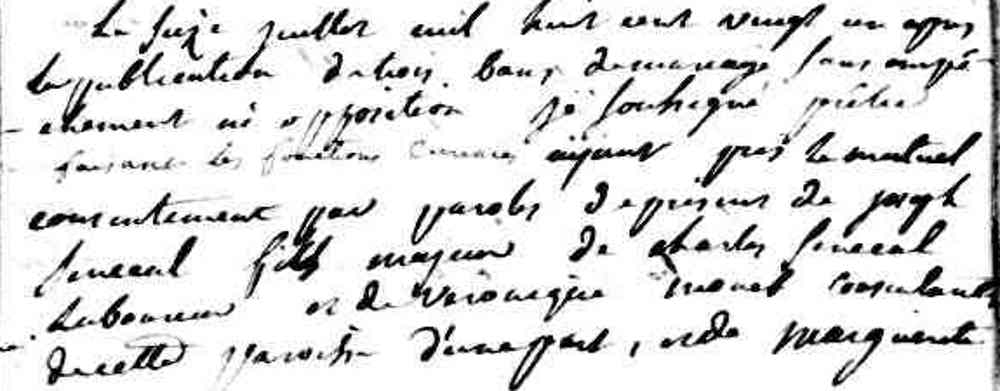 Le seize juillet mil huit cent vingt un apres
la publication de trois bans de mariage sans empe-
chement ni opposition je soussigné prêtre
faisant les fonctions curiales ayant pris le mutuel
consentement par paroles de présent de joseph
senecal fils majeur de charles senecal
laboureur et de veronique monet consentants
de cette paroisse d'une part, et de marguerite